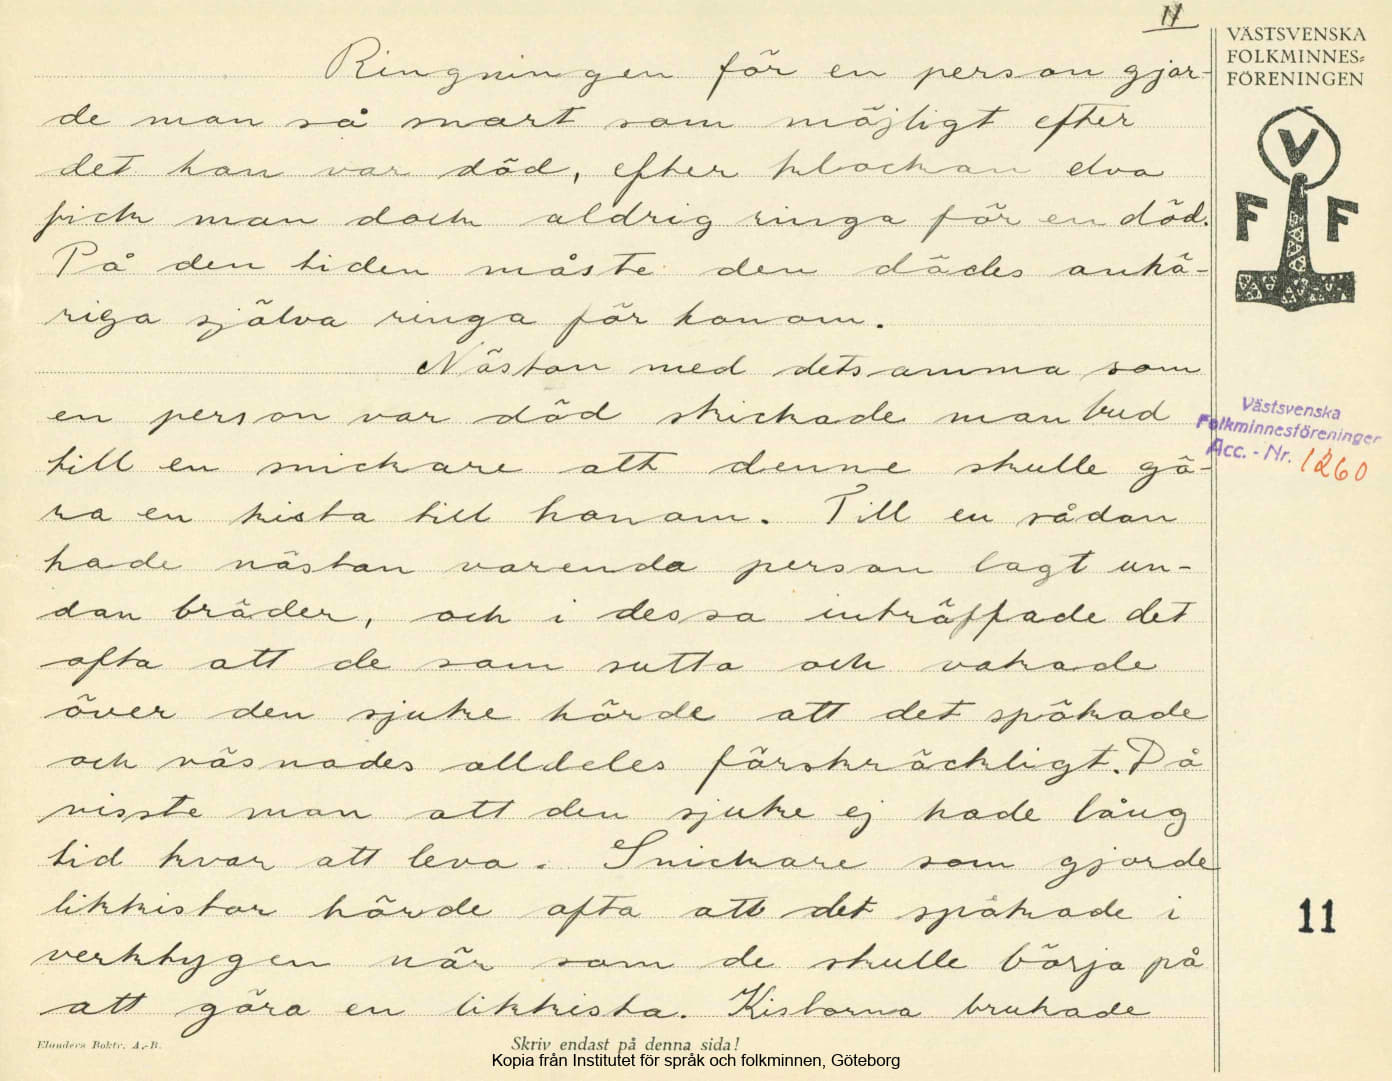 11
VÄSTSVENSKA
FOLKMINNES=
FÖRENINGEN
V
F F
Ringningen för en person gjor-
de man så snart som möjligt efter
det han var död, efter klockan elva
fick man dock aldrig ringa för en död.
På den tiden måste den dödes anhö-
riga själva ringa för honom.
Nästan med detsamma som
en person var död skickade man bud
till en snickare att denne skulle gö-
ra en kista till honom. Till en sådan
hade nästan varenda person lagt un-
dan bräder, och i dessa inträffade det
ofta att de som sutto och vakade
över den sjuke hörde att det spökade
och väsnades alldeles förskräckligt. Då
visste man att den sjuke ej hade lång
tid kvar att leva. Snickare som gjorde
likkistor hörde ofta att det spökade i
verktygen när som de skulle börja på
att göra en likkista. Kistorna brukade
Västsvenska
Folkminnesföreninger
Acc. - Nr. 1260
11
Elanders Boktr. A.-B.
Skriv endast på denna sida!
Kopia från Institutet för språk och folkminnen, Göteborg